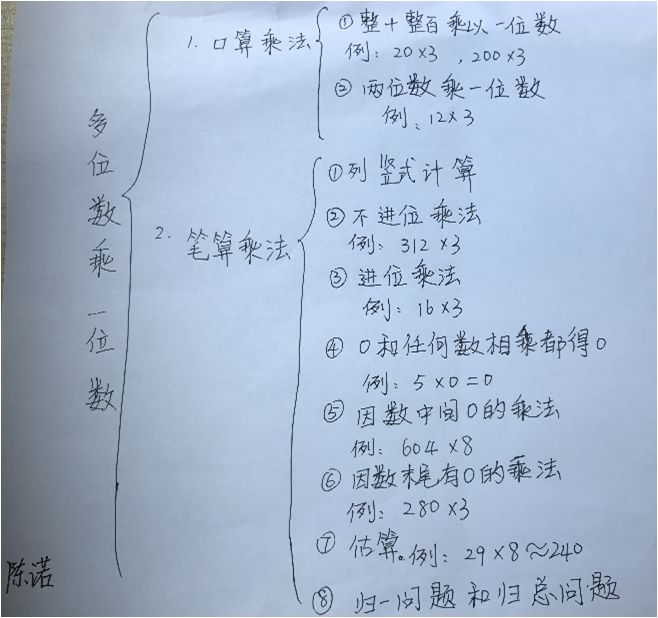 多位数乘一位数
1. 口算乘法
① 整十整百乘以一位数
例：20×3，200×3
② 两位数乘一位数
例：12×3
2. 笔算乘法
① 列竖式计算
② 不进位乘法
例：312×3
③ 进位乘法
例：16×3
④ 0和任何数相乘都得0
例：5×0=0
⑤ 因数中间0的乘法
例：604×8
⑥ 因数末尾有0的乘法
例：280×3
⑦ 估算。例：29×8≈240
⑧ 归一问题和归总问题
陈诺